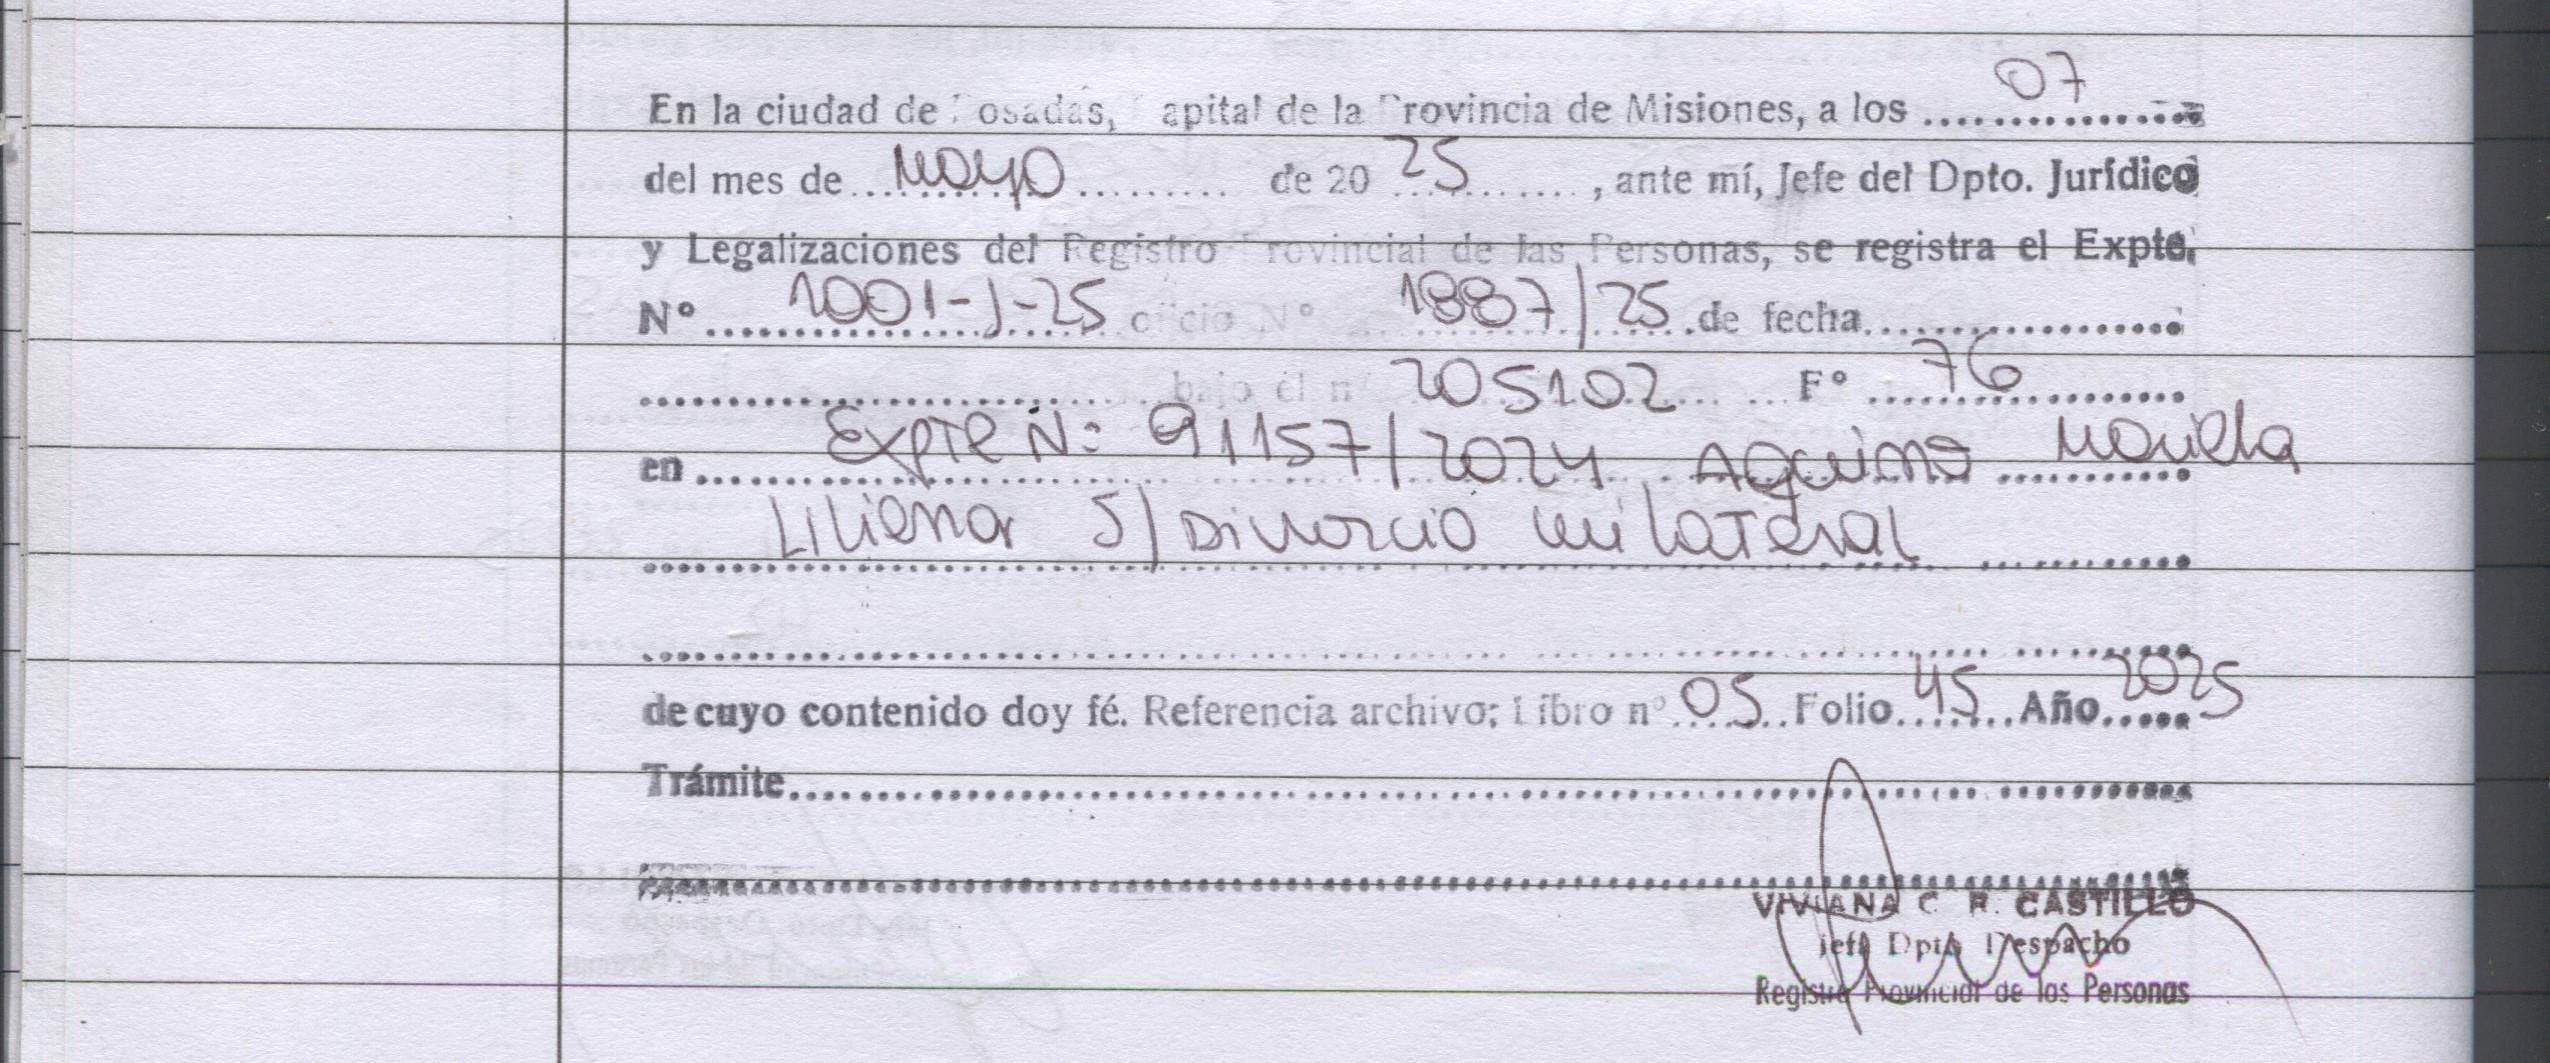 En la ciudad de Posadas, Capital de la Provincia de Misiones, a los ......07......
del mes de ...Mayo... de 20 25 , ante mí, Jefe del Dpto. Jurídico
y Legalizaciones del Registro Provincial de las Personas, se registra el Expte.
N° 1001-J-25 oficio N° 1887/25 de fecha..................
.................. bajo el n° 205102 F° 76
en Expte N: 91157/2024 Aquino Mariela
Liliana S/ Divorcio unilateral
..................
de cuyo contenido doy fé. Referencia archivo; Libro n° 05 Folio 45 Año 2025
Trámite..................
..................
VIVIANA C. R. CASTILLO
Jefe Dpto Despacho
Registro Provincial de las Personas